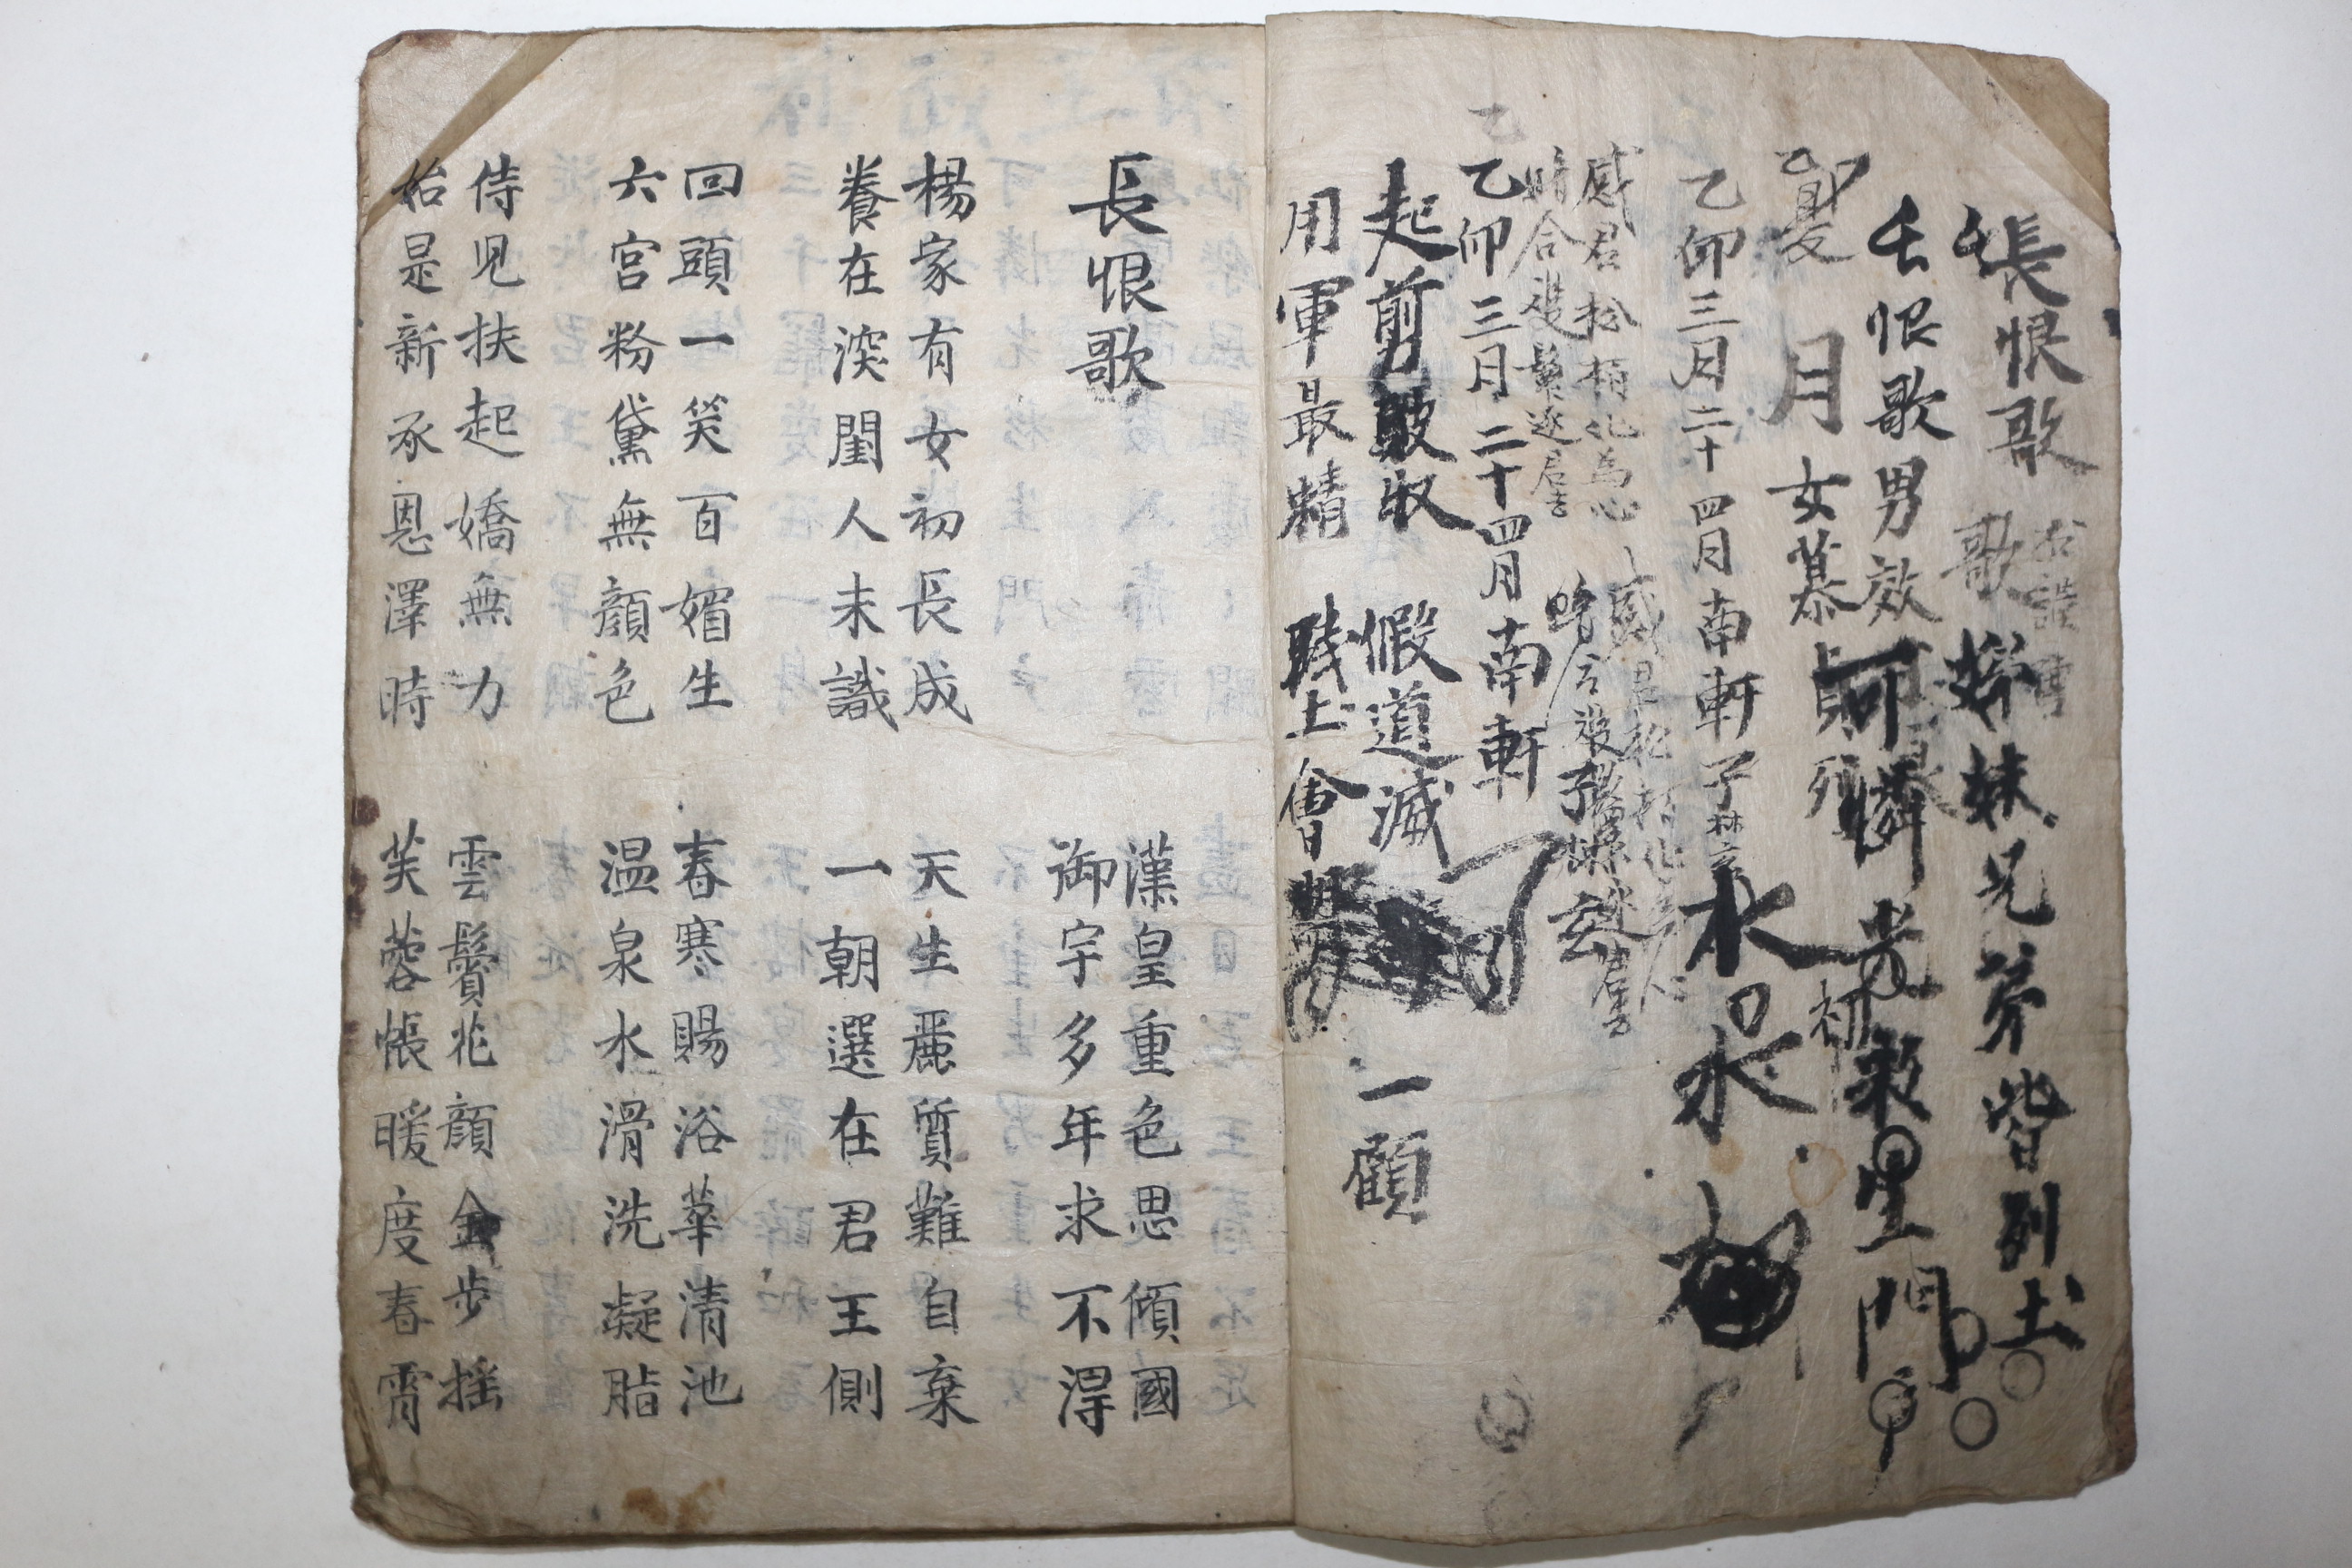 長恨歌
姊妹兄弟皆列土
恨歌男效
可憐光彩生門
月女慕貞烈
乙卯三月二十四月南軒子
水
水
感君松栢化為心
暗合雙鬟逐君去
乙卯三月二十四月南軒
起翦頗牧 假道滅 一顧
用軍最精 踐土會盟
長恨歌
漢皇重色思傾國
御宇多年求不得
楊家有女初長成 天生麗質難自棄
養在深閨人未識 一朝選在君王側
回頭一笑百媚生 春寒賜浴華清池
六宮粉黛無顔色 温泉水滑洗凝脂
侍児扶起嬌無力 雲鬢花顔金步搖
始是新承恩澤時 芙蓉帳暖度春宵